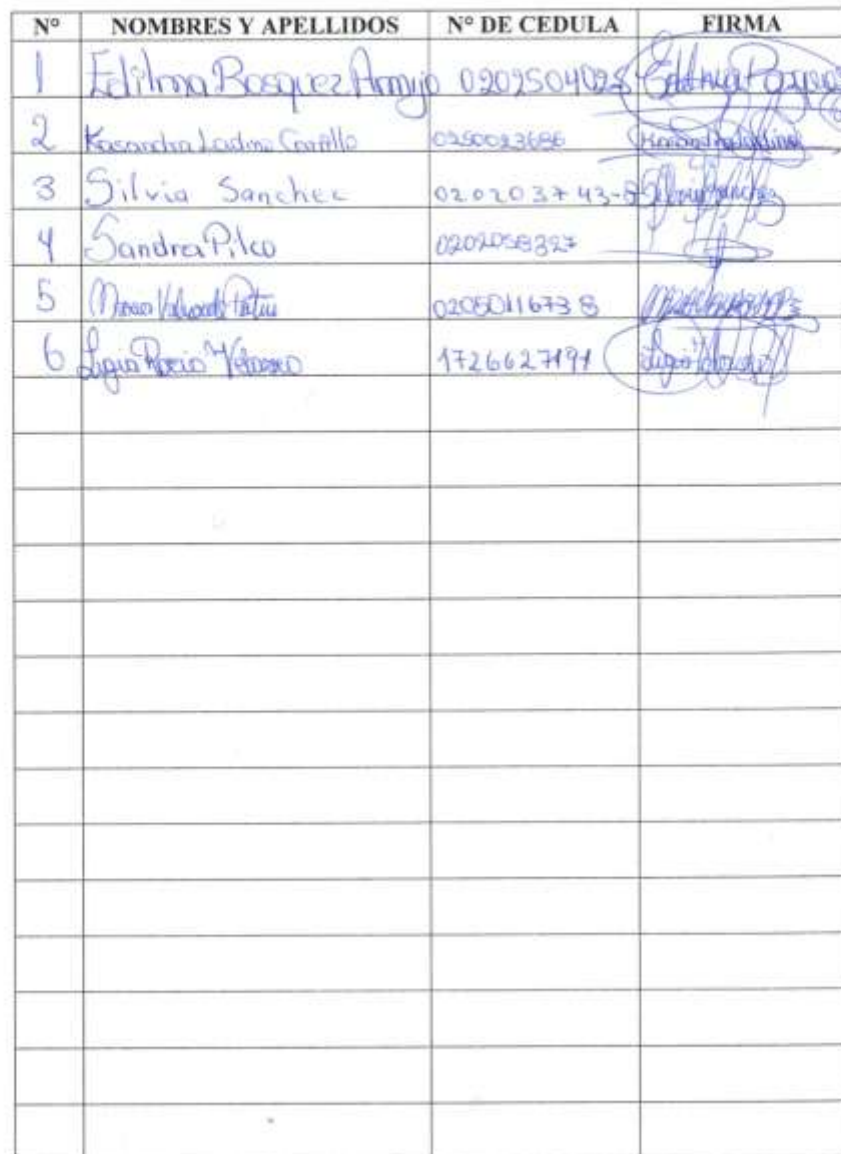 N° NOMBRES Y APELLIDOS N° DE CEDULA FIRMA
1 Edilma Bosquez Armijo 0202504025
2 Kasandra Ladino Carrillo 0250023686
3 Silvia Sanchez 020203743-8 Silvia Sanchez
4 Sandra Pilco 0202058327
5 0205011673 8
6 Ligia Rocio Velasco 1726627191 Ligia Velasco